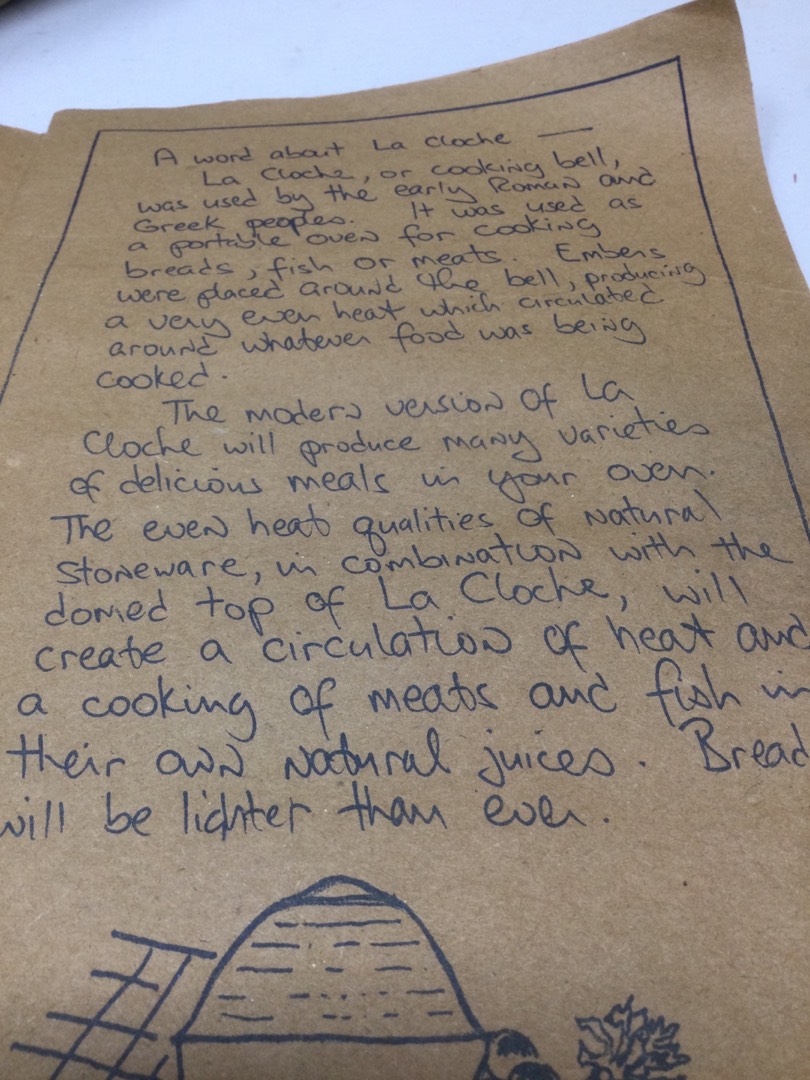 A word about La Cloche —
La Cloche, or cooking bell,
was used by the early Roman and
Greek peoples. It was used as
a portable oven for cooking
breads, fish or meats. Embers
were placed around the bell, producing
a very even heat which circulated
around whatever food was being
cooked.
The modern version of La
Cloche will produce many varieties
of delicious meals in your oven.
The even heat qualities of natural
stoneware, in combination with the
domed top of La Cloche, will
create a circulation of heat and
a cooking of meats and fish in
their own natural juices. Bread
will be lighter than ever.